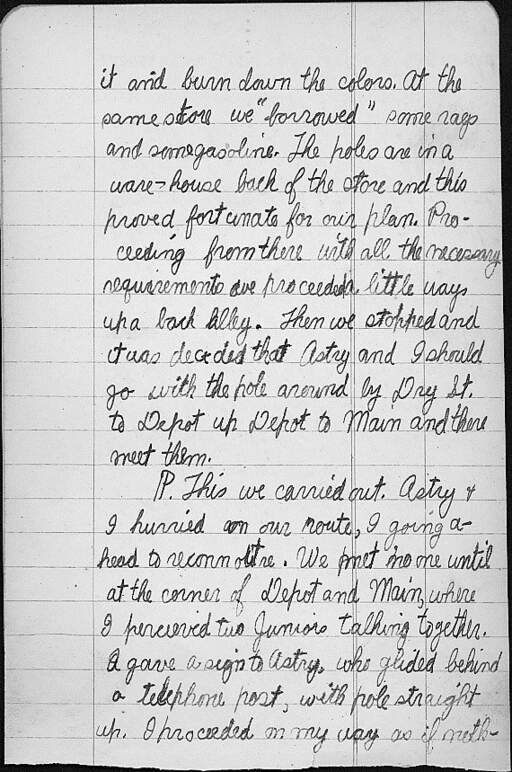 it and burn down the colors. At the
same store we "borrowed" some rags
and some gasoline. The poles are in a
ware-house back of the store and this
proved fortunate for our plan. Pro-
ceeding from there with all the necessary
requirements we proceeded a little ways
up a back alley. Then we stopped and
it was decided that Astry and I should
go with the pole around by Dry St.
to Depot up Depot to Main and there
meet them.
P. This we carried out. Astry &
I hurried on our route, I going a-
head to reconnoitre. We met no one until
at the corner of Depot and Main, where
I percieved two Juniors talking together.
I gave a sign to Astry, who glided behind
a telephone post, with pole straight
up. I proceeded on my way as if noth-